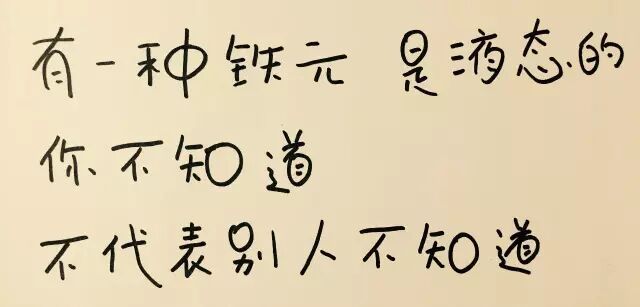 有一种铁元 是液态的
你不知道
不代表别人不知道